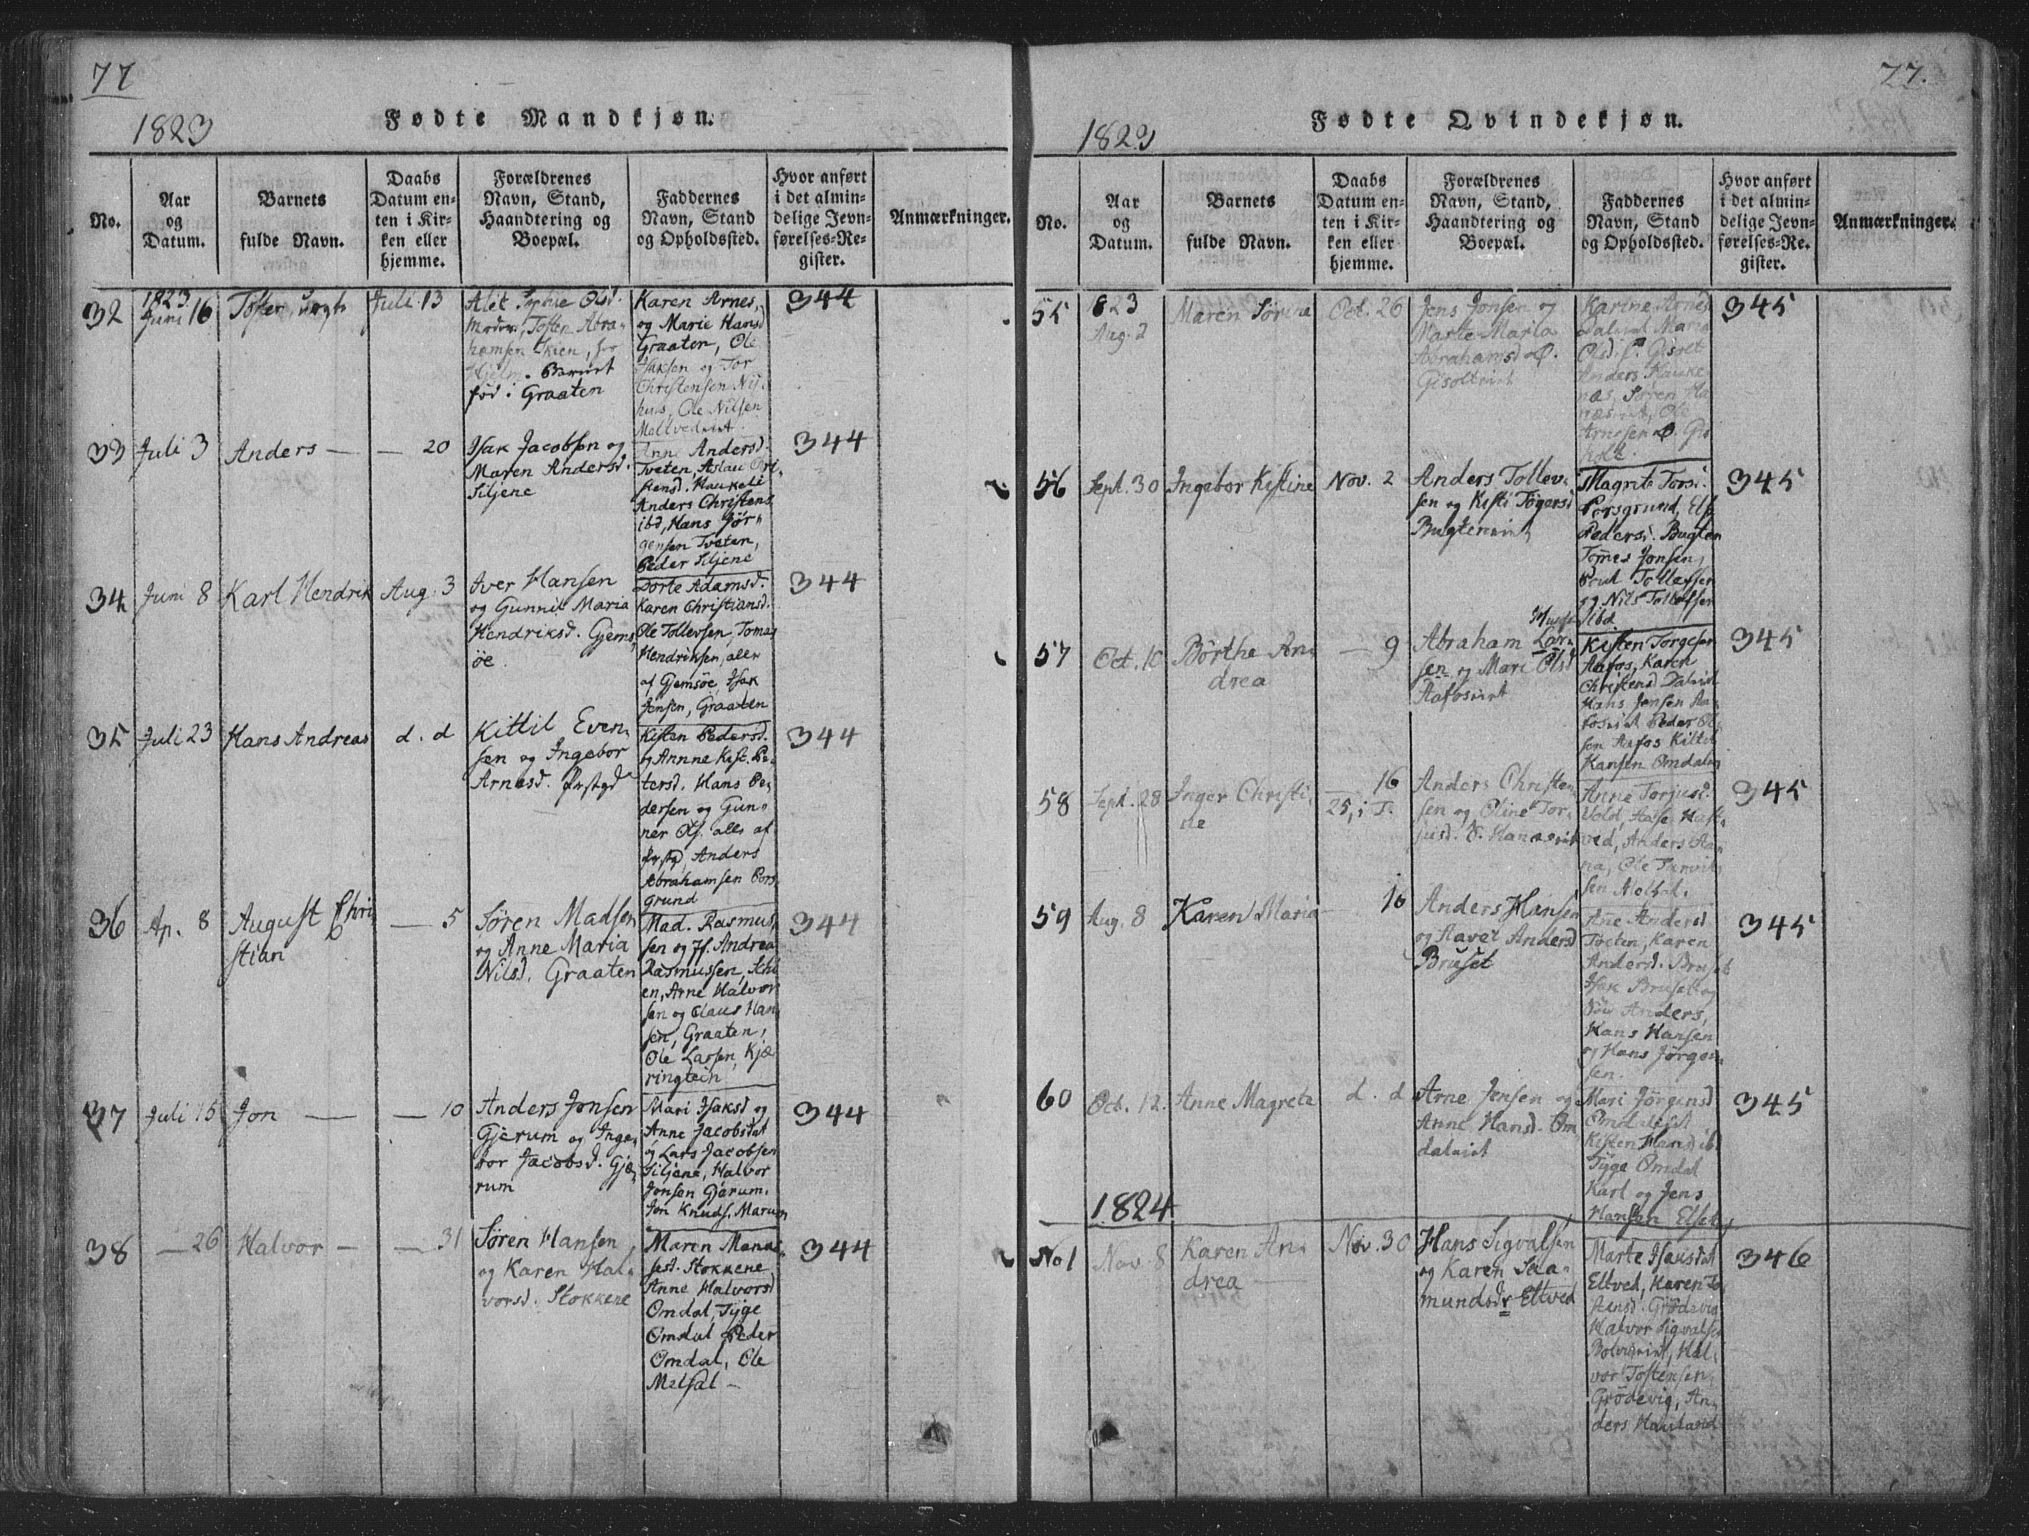 77
1823
Fødte Mandkjøn.
No.
Aar
og
Datum.
Barnets
fulde Navn.
Daabs
Datum en-
ten i Kir-
ken eller
hjemme.
Forældrenes
Navn, Stand,
Haandtering og
Boepæl.
Faddernes
Navn, Stand
og Opholdssted.
Hvor anført
i det almin-
delige Jevn-
førelses-Re-
gister.
Anmærkninger.
32
1823
Juni 16
Tosten, uægt
Juli 13
Alet Sophie Olsd.
Moder, Tosten Abra-
hamsen Skien,
Barnet
fød i Graaten
Karen Arnes,
og Marie Hansd
Graaten, Ole
Isaksen og Tor
Christensen Nis-
hus, Ole Nilsen
344
33
Juli 3
Anders —
— 20
Isak Jacobsen og
Maren Andersd.
Siljene
Anne Andersd.
Tveten, Aslau
stensd. Haukeli
Anders Christens
ibd, Hans Jør-
gensen Tveten,
Peder Siljene
344
34
Juni 8
Karl Hendrik
Aug. 3
Iver Hansen
og Gunnil Maria
Hendriksd. Gjems
øe
Dorte Adamsd.
Karen Christiansd.
Ole Tollevsen, Tomas
Hendriksen, alle
af Gjemsøe, Isak
Jensen, Graaten
344
35
Juli 23
Hans Andreas
d. d
Kittil Even-
sen og Ingebor
Arnesd.
Kisten Pedersd.
og Annne Kist. Pe-
tersd. Hans Pe-
dersen og Gun-
ner Ols. alle af
Anders
Abrahamsen Pors-
grund
344
36
Ap. 8
August Chri
stian
— 5
Søren Madsen
og Anne Maria
Nilsd. Graaten
Mad. Rasmus-
sen og Jf. Andrea
Rasmussen, Ski
en, Arne Halvor
sen og Claus Han
sen, Graaten,
Ole Larsen, Kjæ
ringtein
344
37
Juli 15
Jon —
— 10
Anders Jonsen
Gjerum og Inge-
bor Jacobsd. Gjæ-
rum
Mari Isaksd og
Anne Jacobsdat
og Lars Jacobsen
Siljene, Halvor
Jonsen Gjerum,
Jon Knuds. Marum
344
38
— 26
Halvor —
— 31
Søren Hansen
og Karen Hal-
vorsd. Stokkene
Maren Manas-
sesd. Stokkene
Anne Halvorsd
Omdal, Tyge
Omdal Peder
Omdal, Ole
Melsal —
344
77.
1823
Fødte Qvindekjøn.
No.
Aar
og
Datum.
Barnets
fulde Navn.
Daabs
Datum en-
ten i Kir-
ken eller
hjemme.
Forældrenes
Navn, Stand,
Haandtering og
Boepæl.
Faddernes
Navn, Stand
og Opholdssted.
Hvor anført
i det almin-
delige Jevn-
førelses-Re-
gister.
Anmærkninger.
55
823
Aug. 2
Maren Sørine
Oct. 26
Jens Jonsen og
Marte Maria
Abrahamsd Ø.
Gisolteiet
Karine Arnes
Maria
Olsd. Ø. Gisolt
Anders Hauke
næs, Søren Ha
næs, Ole
Arnesen Ø. Gis
holt.
345
56
Sept. 30
Ingebor Kistine
Nov. 2
Anders Tollev-
sen og Kisti Tøgersd
Bugteneiet
Magrite Torsi.
Porsgrund, Else
Pedersd. Bugten
Tomes Jonsen,
Poul Tollefsen
og Nils Tollefsen
ibd
345
57
Oct. 10
Børthe An-
drea
— 9
Abraham Lar-
sen og Mari Olsd
Aafoseiet
Kisten Torgesen
Aafos, Karen
Christensd Daleiet
Hans Jensen Aa-
foseiet Peder Ol-
sen Aafos Kittil
Hansen Omdalen
345
58
Sept. 28
Inger Christi-
ne
16
25, i T.
Anders Christen
sen og Oline Tor-
jusd. V. Hanæseiet
Anne Torjusd.
Vold, Hast-
ved, Anders Han
na, Ole
sen Melsal.
345
59
Aug. 8
Karen Maria
16
Anders Hansen
og Aavet Andersd
Bruset
Ane Andersd
Tveten, Karen
Andersd. Bruset
Isak Bruset og
Anders,
Hans Hansen
og Hans Jørgen-
sen.
345
60
Oct. 12.
Anne Magrete
d. d
Arne Jensen og
Anne Hansd. Om
daleiet
Mari Jörgensd
Omdaleiet
Kisten Hansd ibd
Tyge Omdal
Karl og Jens
Hansen Elset
345
1824
No 1
Nov. 8
Karen An-
drea —
Nov. 30
Hans Sigvalsen
og Karen Saa-
mundsdr Eltved
Marte Isaksdat
Eltved, Karen To
stensd. Grödevig
Halvor Sigvalsen
Hal-
vor Tostensen,
Grödevig, An-
ders Haukand
346